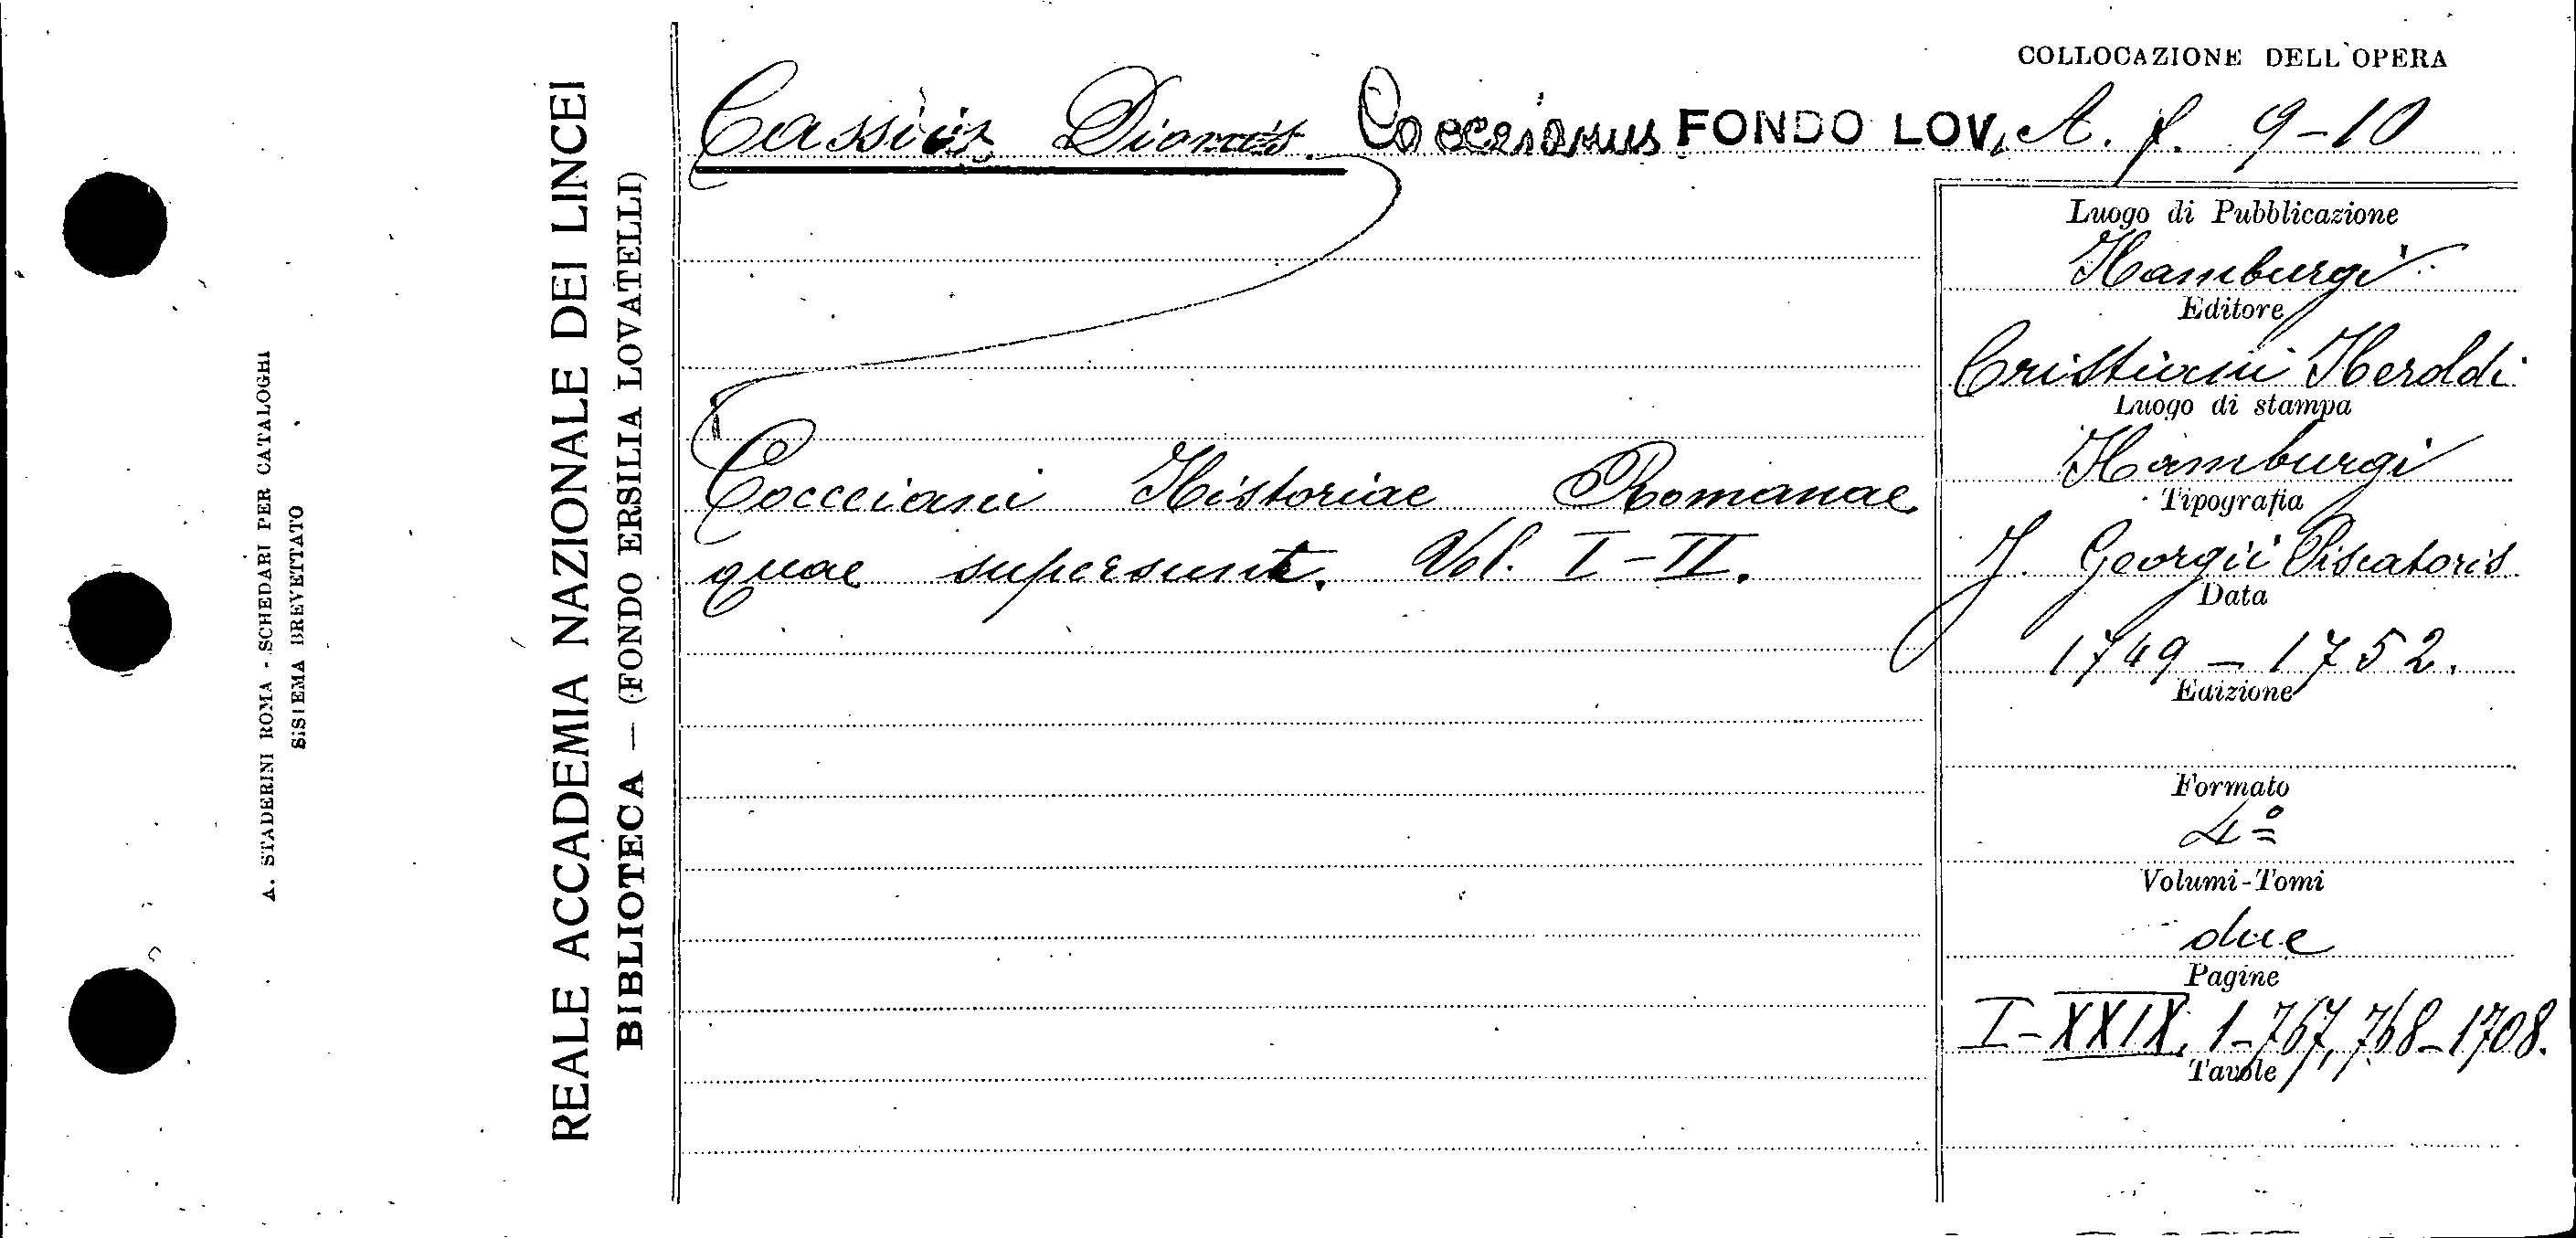 A. STADERINI ROMA - SCHEDARI PER CATALOGHI
SISTEMA BREVETTATO
REALE ACCADEMIA NAZIONALE DEI LINCEI
BIBLIOTECA — (FONDO ERSILIA LOVATELLI)
COLLOCAZIONE DELL'OPERA
Cassius Dio Cocceianus FONDO LOV. A. f. 9-10
Cocceiani Historiae Romanae
quae supersunt. Vol. I-II.
Luogo di Pubblicazione
Hamburgi
Editore
Cristiani Heroldi
Luogo di stampa
Hamburgi
Tipografia
J. Georgii Piscatoris
Data
1749 - 1752.
Edizione
Formato
4º
Volumi-Tomi
due
Pagine
I-XXIX, 1-767, 768-1708.
Tavole